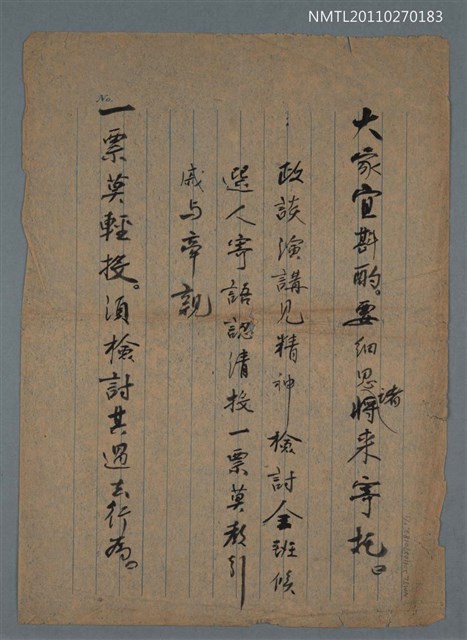 NMTL20110270183
No.
大家宜斟酌。要細思諸將来寄托。
政談演講見精神 檢討全班候
選人寄語認清投一票莫教引
戚与牽親
一票莫輕投。須檢討其過去行為。